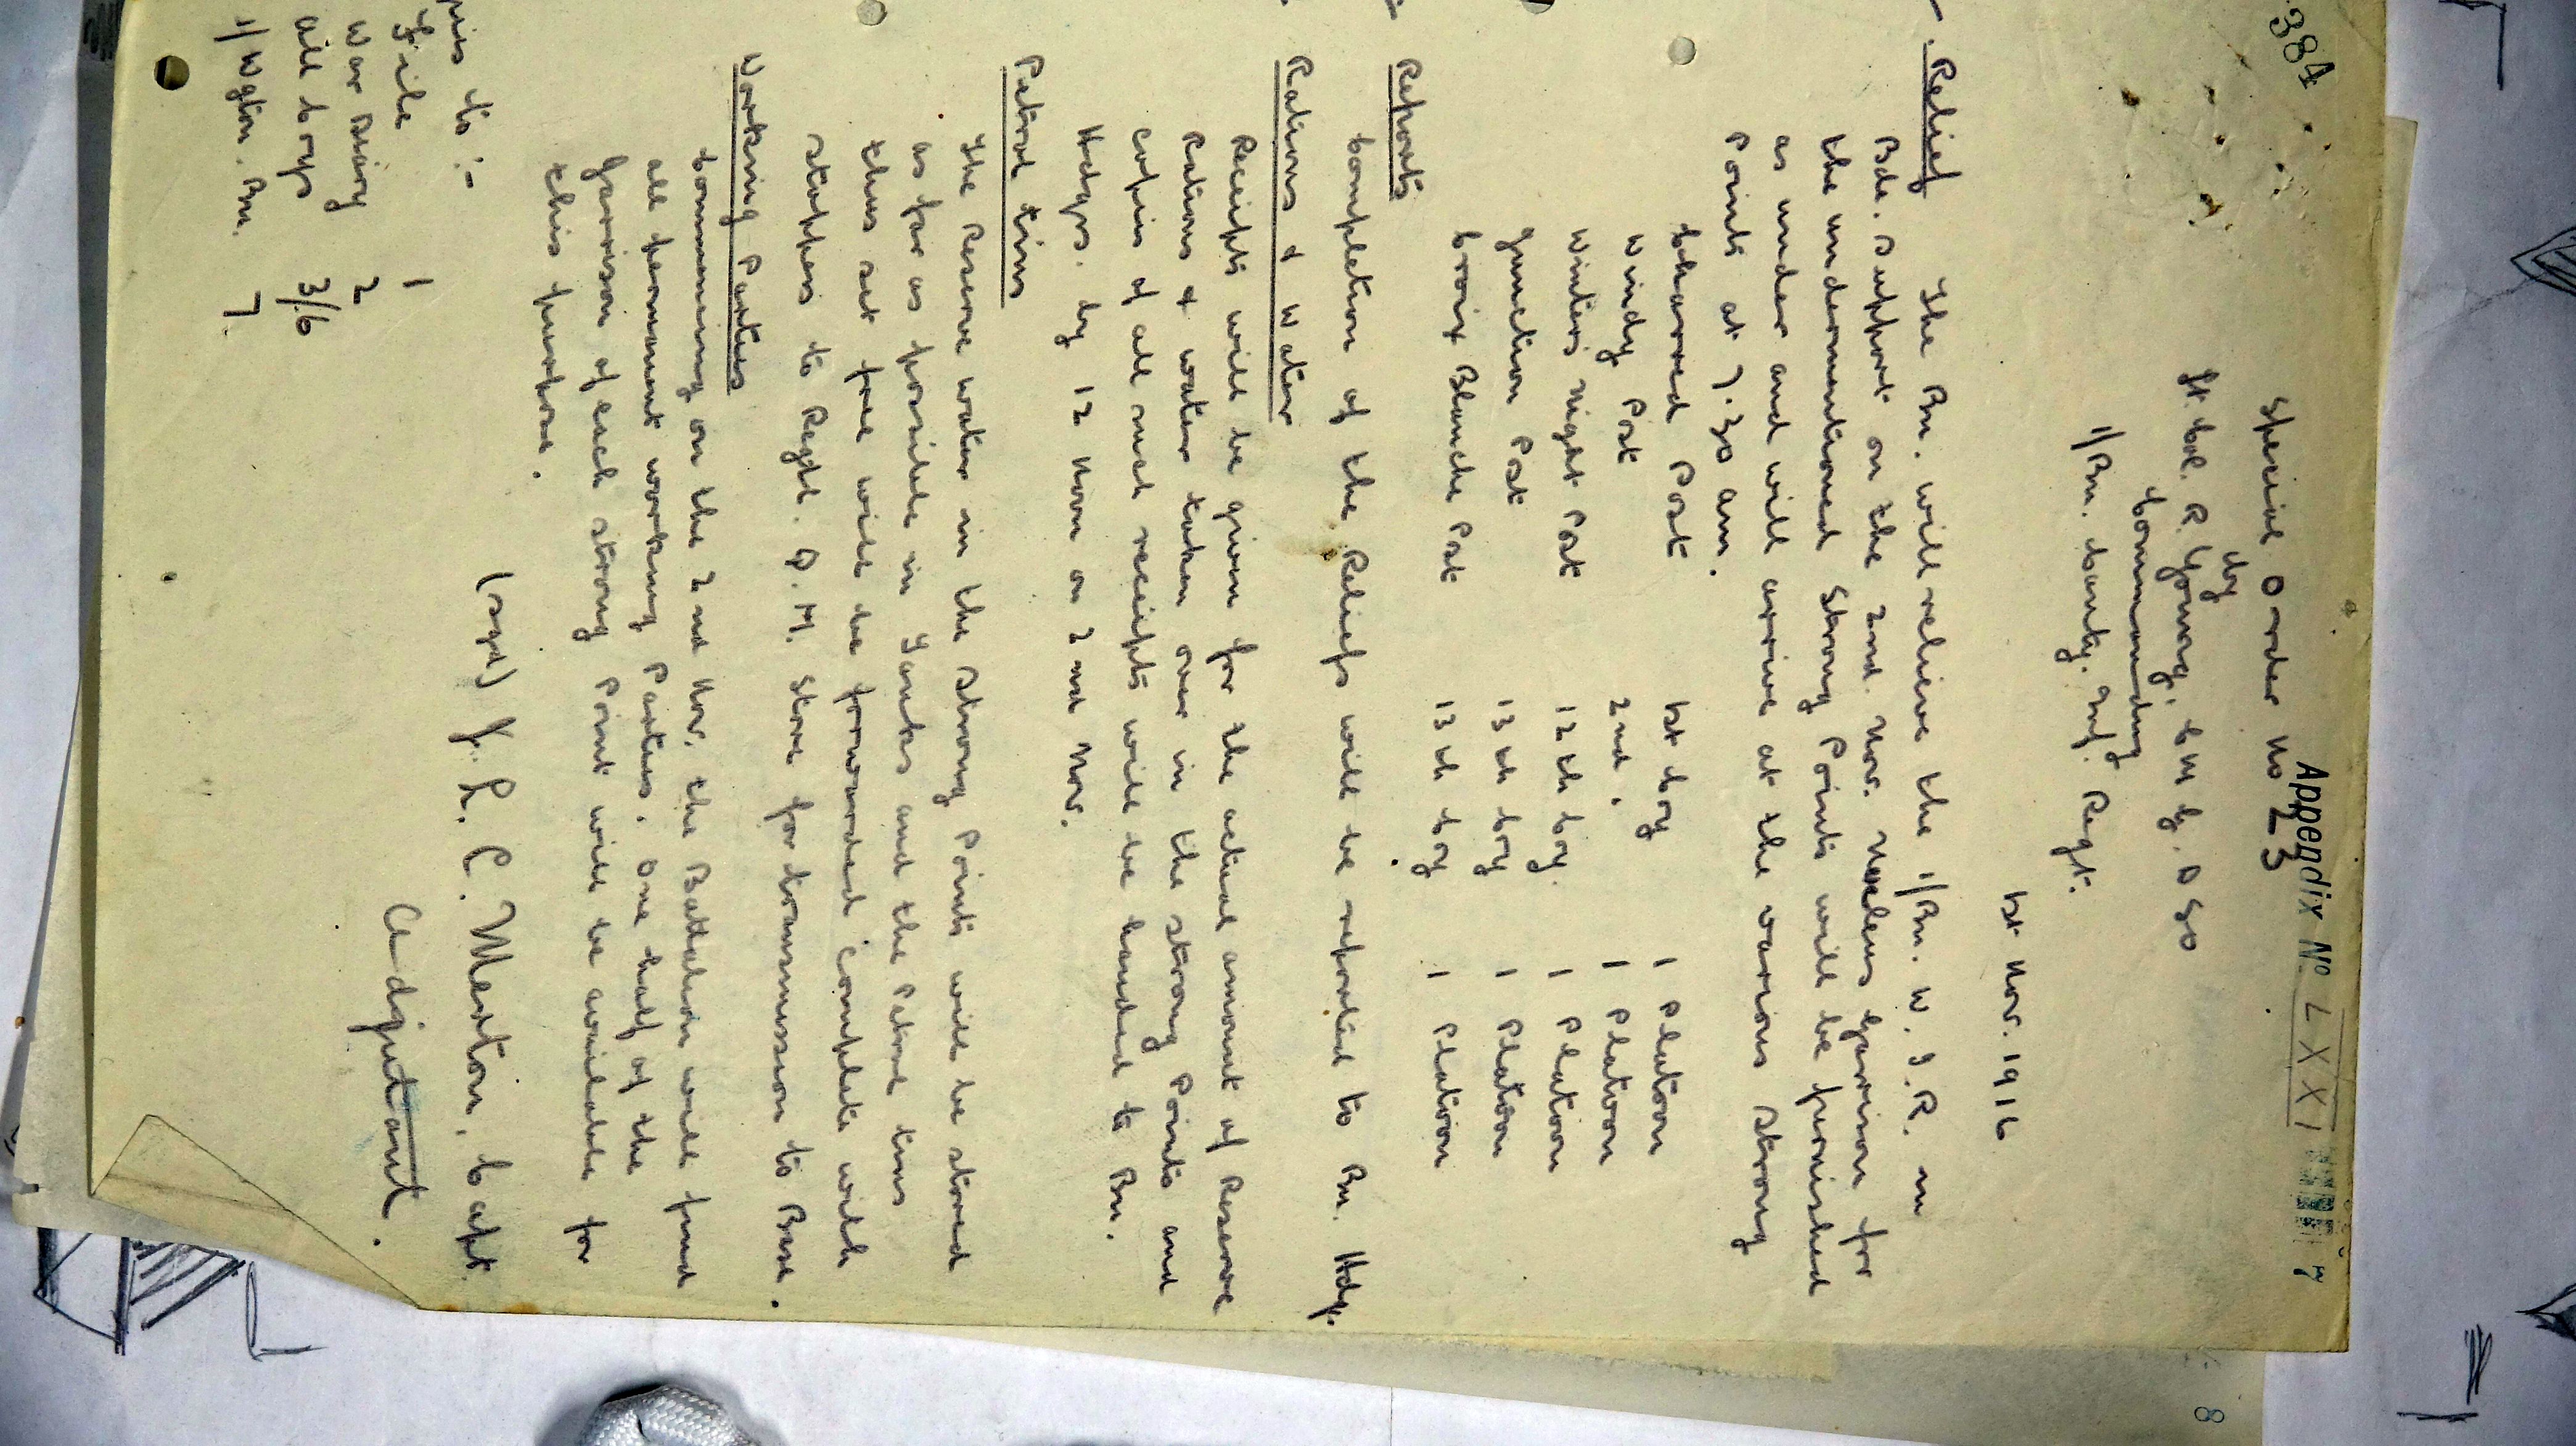 384
Appendix No LXXI
7
Special Order No 23
by
Lt. Col. R Young, C M G. D S O
Commanding
1/Bn. Canty. Inf. Regt.
1st Nov. 1916
Relief The Bn. will relieve the 1/Bn. W. I. R. in
Bde. support on the 2nd Nov. Nucleus Garrison for
the undermentioned Strong Points will be furnished
as under and will arrive at the various Strong
Points at 7.30 am.
Charred Post 1st Coy 1 Platoon
Windy Post 2nd " 1 Platoon
Winters Night Post 12th Coy. 1 Platoon
Junction Post 13th Coy 1 Platoon
Croix Blanche Post 13th Coy 1 Platoon
Reports
Completion of the Reliefs will be reported to Bn. Hdqr.
Rations & Water
Receipts will be given for the actual amount of Reserve
Rations & water taken over in the Strong Points and
copies of all such receipts will be handed to Bn.
Hdqrs. by 12 Noon on 2nd Nov.
Petrol tins
The Reserve water in the Strong Points will be stored
as far as possible in Tanks and the Petrol tins
thus set free will be forwarded complete with
stoppers to Regtl. Q. M. Store for transmission to Base.
Working Parties
Commencing on the 2nd Nov. the Battalion will find
all permanent working Parties. One half of the
Garrison of each strong Point will be available for
this purpose.
(sgd) J. L. C. Merton, Capt.
Adjutant.
pies to :-
File 1
War Diary 2
All Coys 3/6
1/Wgton. Bn. 7.
8